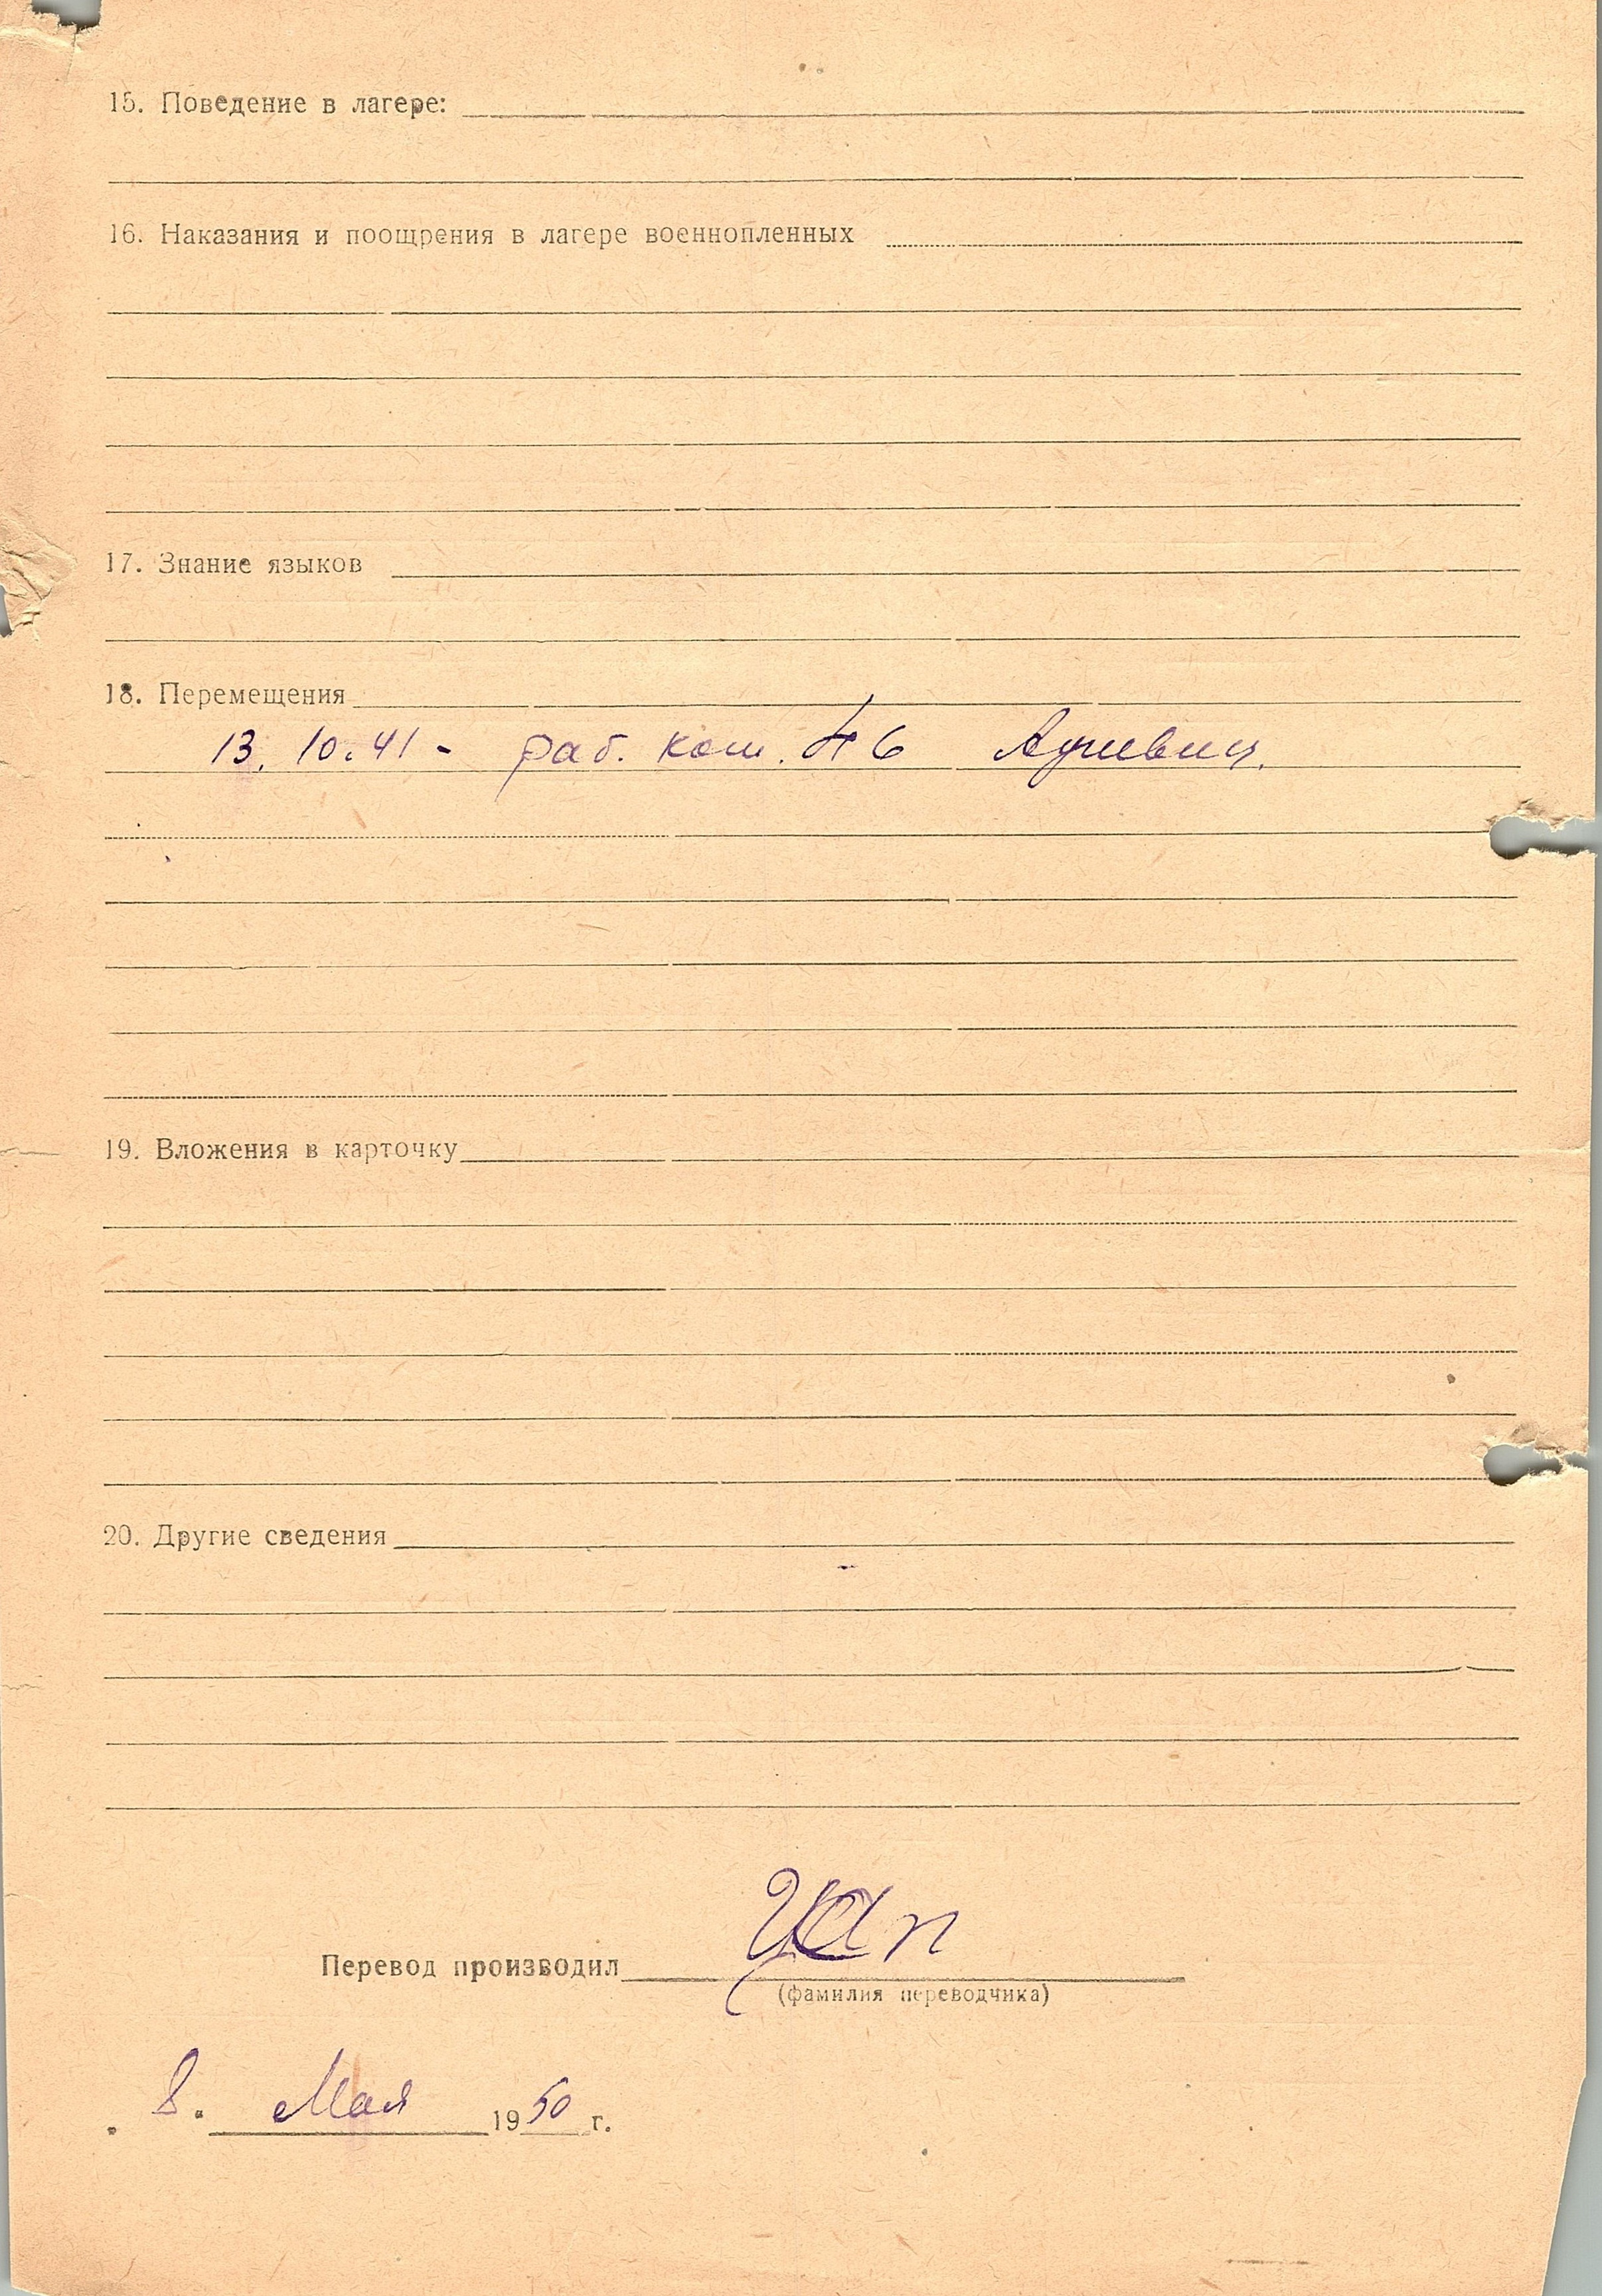 15. Поведение в лагере:
16. Наказания и поощрения в лагере военнопленных
17. Знание языков
18. Перемещения
13. 10. 41 - раб. ком. H 6
19. Вложения в карточку
20. Другие сведения
Перевод производил
(фамилия переводчика)
8. Мая 1950 г.